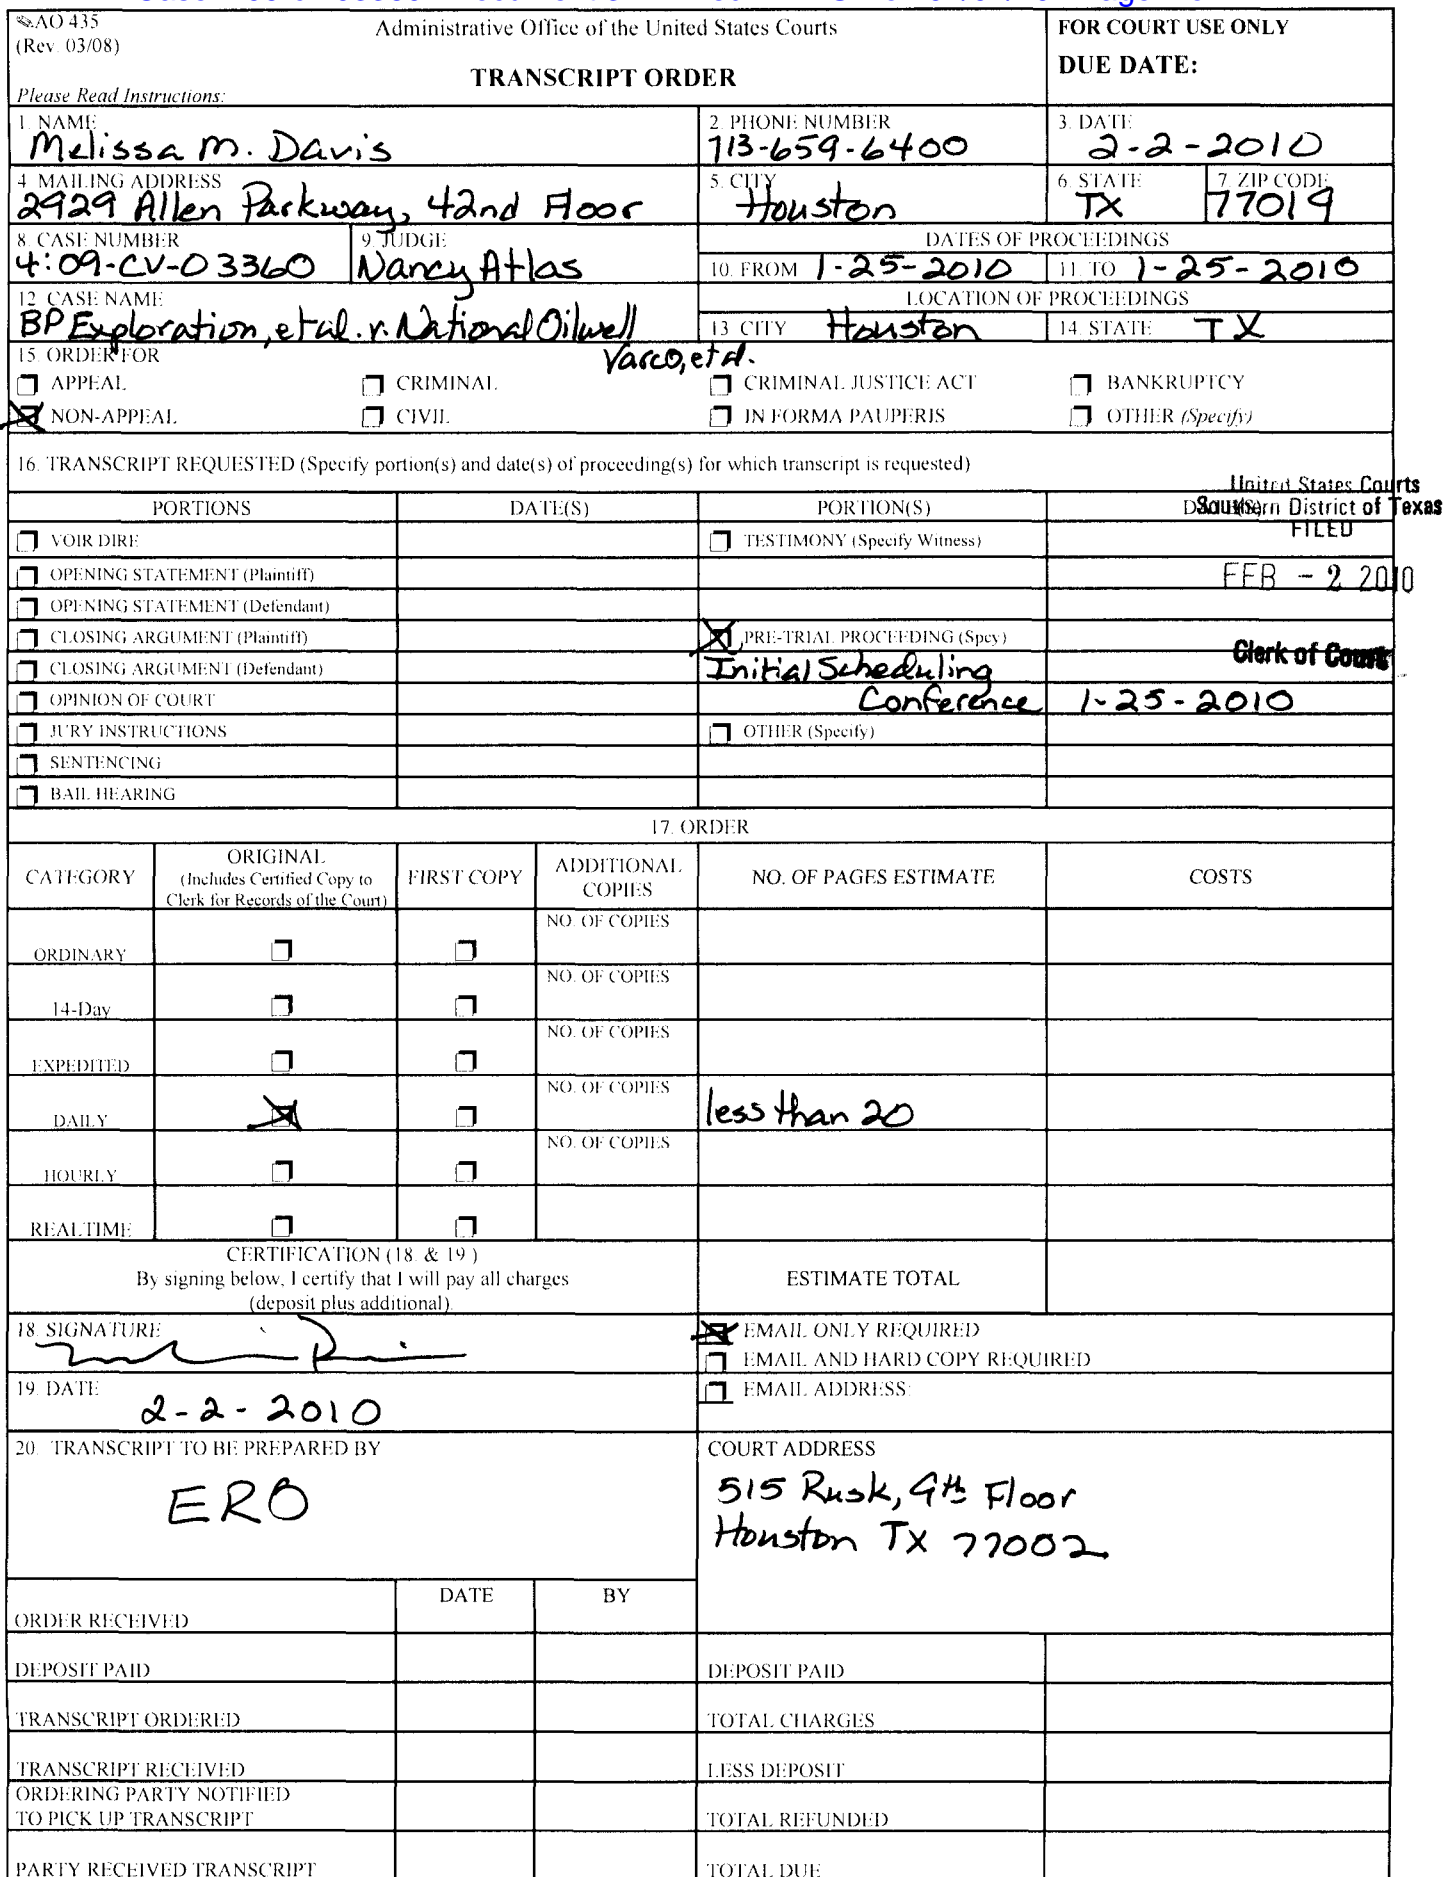 AO 435
(Rev. 03/08)
Administrative Office of the United States Courts
FOR COURT USE ONLY
TRANSCRIPT ORDER
DUE DATE:
Please Read Instructions:
1. NAME
Melissa M. Davis
2. PHONE NUMBER
713-659-6400
3. DATE
2-2-2010
4. MAILING ADDRESS
2929 Allen Parkway, 42nd Floor
5. CITY
Houston
6. STATE
TX
7. ZIP CODE
77019
8. CASE NUMBER
4:09-CV-03360
9. JUDGE
Nancy Atlas
DATES OF PROCEEDINGS
10. FROM 1-25-2010
11. TO 1-25-2010
12. CASE NAME
BP Exploration, et al. v. National Oilwell
Varco, et al.
LOCATION OF PROCEEDINGS
13. CITY Houston
14. STATE TX
15. ORDER FOR
APPEAL
CRIMINAL
CRIMINAL JUSTICE ACT
BANKRUPTCY
NON-APPEAL
CIVIL
IN FORMA PAUPERIS
OTHER (Specify)
16. TRANSCRIPT REQUESTED (Specify portion(s) and date(s) of proceeding(s) for which transcript is requested)
United States Courts
Southern District of Texas
FILED
FEB - 2 2010
Clerk of Court
PORTIONS
DATE(S)
PORTION(S)
VOIR DIRE
TESTIMONY (Specify Witness)
OPENING STATEMENT (Plaintiff)
OPENING STATEMENT (Defendant)
CLOSING ARGUMENT (Plaintiff)
PRE-TRIAL PROCEEDING (Spcy)
CLOSING ARGUMENT (Defendant)
Initial Scheduling
OPINION OF COURT
Conference 1-25-2010
JURY INSTRUCTIONS
OTHER (Specify)
SENTENCING
BAIL HEARING
17. ORDER
CATEGORY
ORIGINAL
(Includes Certified Copy to
Clerk for Records of the Court)
FIRST COPY
ADDITIONAL
COPIES
NO. OF PAGES ESTIMATE
COSTS
NO. OF COPIES
ORDINARY
NO. OF COPIES
14-Day
NO. OF COPIES
EXPEDITED
NO. OF COPIES
DAILY
less than 20
NO. OF COPIES
HOURLY
REALTIME
CERTIFICATION (18. & 19.)
By signing below, I certify that I will pay all charges
(deposit plus additional).
ESTIMATE TOTAL
18. SIGNATURE
EMAIL ONLY REQUIRED
EMAIL AND HARD COPY REQUIRED
19. DATE
2-2-2010
EMAIL ADDRESS:
20. TRANSCRIPT TO BE PREPARED BY
ERO
COURT ADDRESS
515 Rusk, 9th Floor
Houston TX 77002
DATE
BY
ORDER RECEIVED
DEPOSIT PAID
DEPOSIT PAID
TRANSCRIPT ORDERED
TOTAL CHARGES
TRANSCRIPT RECEIVED
LESS DEPOSIT
ORDERING PARTY NOTIFIED
TO PICK UP TRANSCRIPT
TOTAL REFUNDED
PARTY RECEIVED TRANSCRIPT
TOTAL DUE